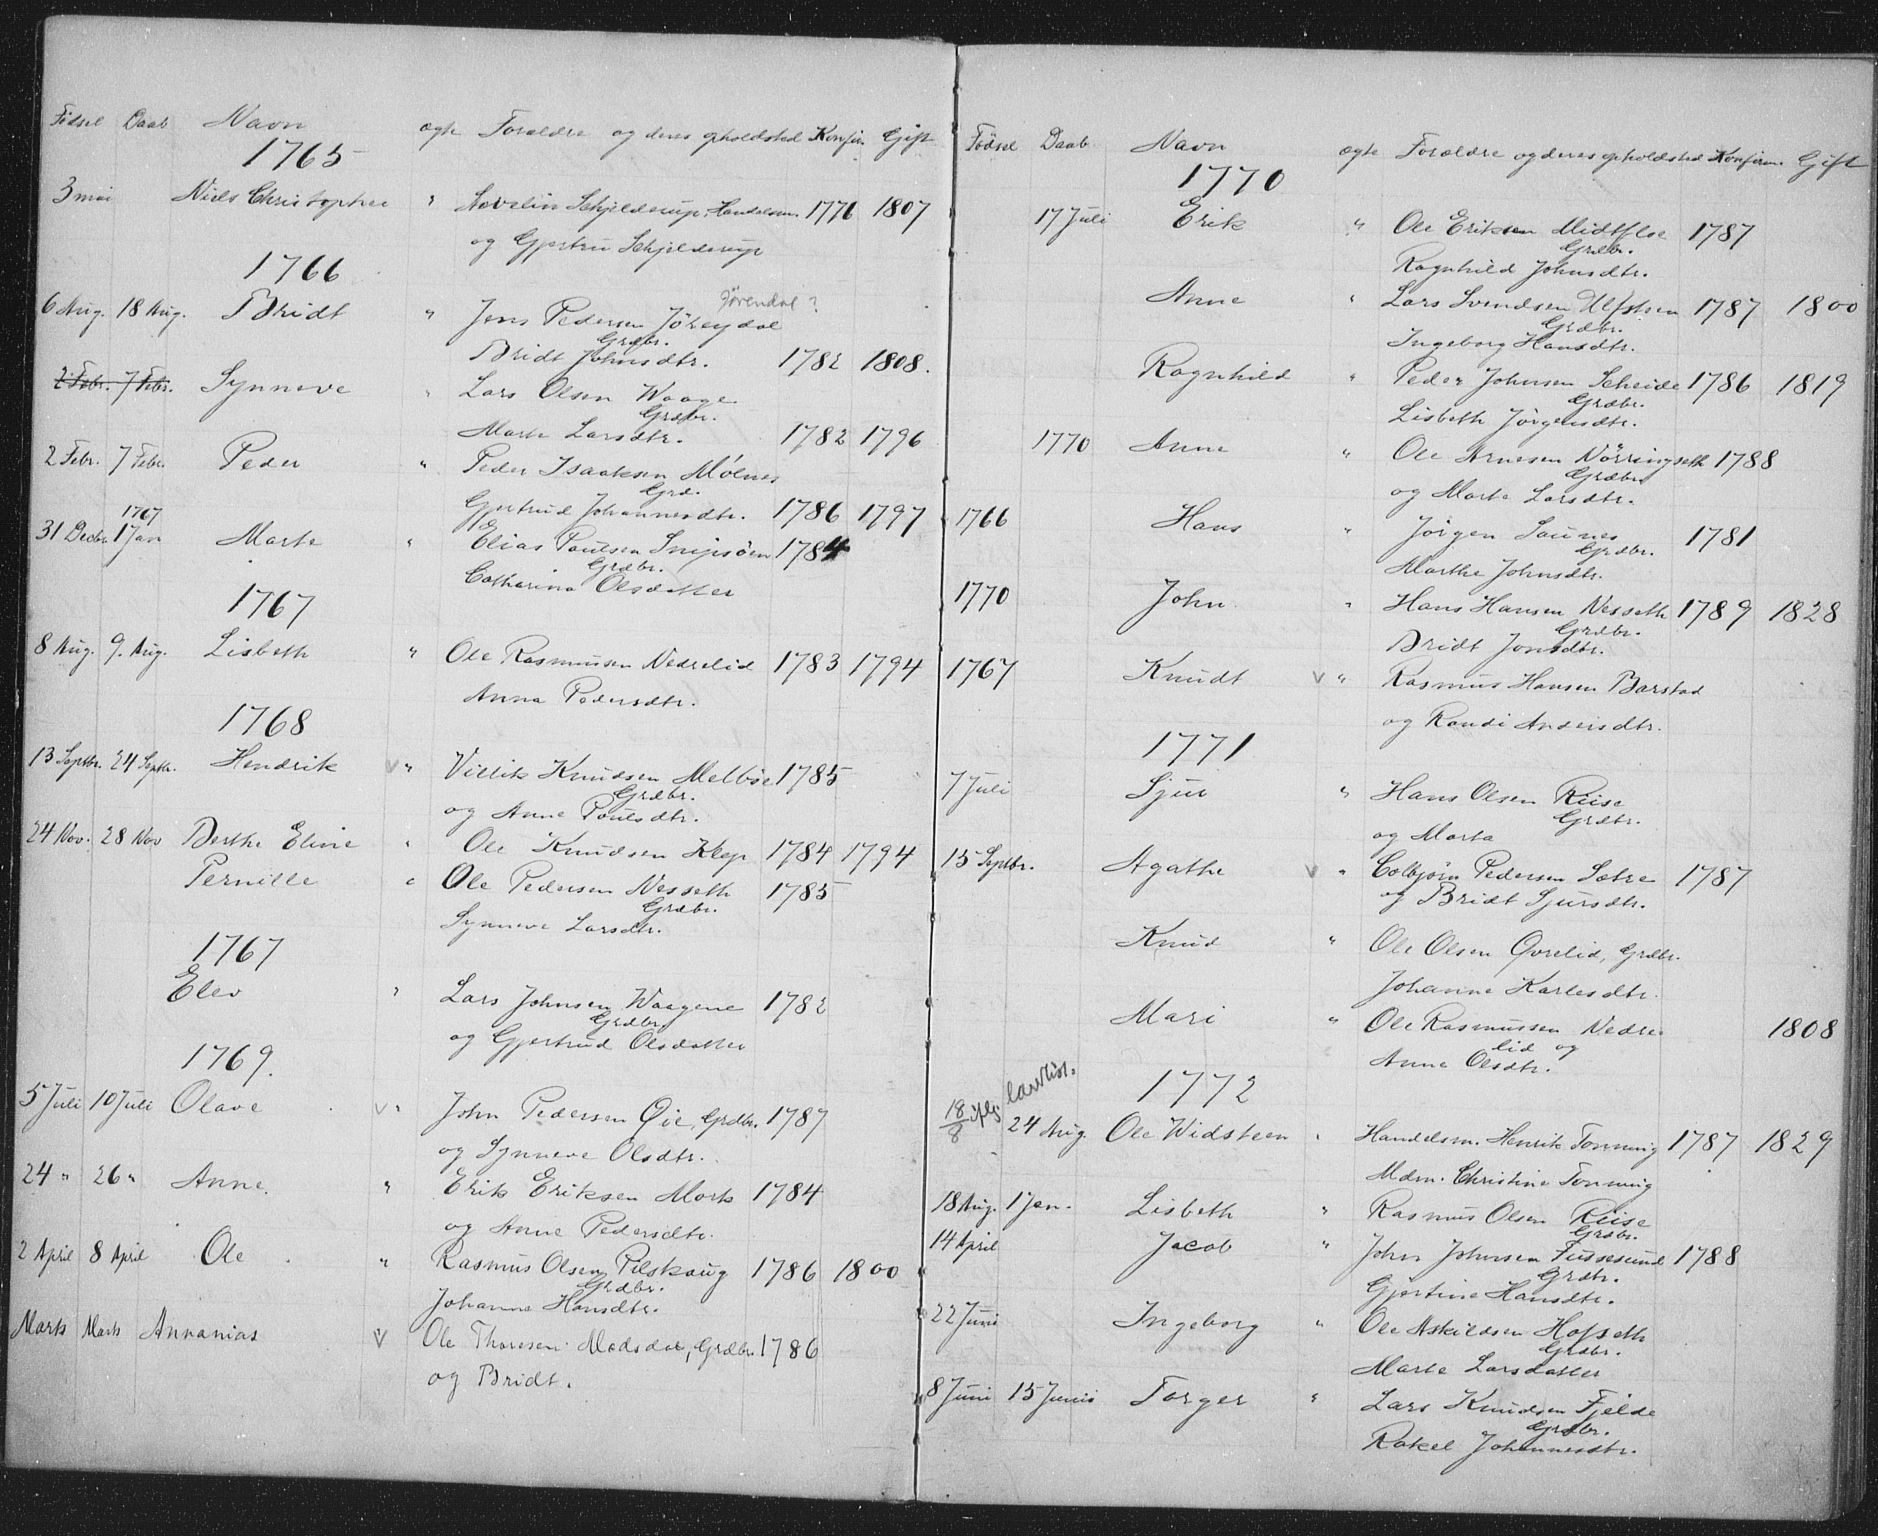 Fødsel Daab Navn ægte Forældre og deres opholdsted Konfir. Gift
1765
3 mai Niels Christopher " Schjelderup, Handelsm. 1771 1807
og Gjertru Schjelderup
1766
Jørendal?
6 Aug. 18 Aug. Bridt " Jens Pedersen
Grdbr.
Bridt Johnsdtr. 1782 1808.
2 Febr. 7 Febr. Synneve " Lars Olsen Waage
Grdbr.
Marte Larsdtr. 1782 1796
2 Febr. 7 Febr. Peder " Peder Isaaksen Molnes
Grd.
Gjertrud Johannesdtr. 1786 1797
1767
31 Decbr. 1 Jan Marte " Elias Poulsen 1784
Grdbr.
Catharina Olsdatter
1767
8 Aug. 9. Aug. Lisbeth " Ole Rasmussen Nedrelid 1783 1794
Anna Pedersdtr.
1768
13 Septbr. 24 Septbr. Hendrik v " Villik Knudsen Melbøe 1785
Grdbr.
og Anne Poulsdtr.
24 Nov. 28 Nov Berthe Eline " Ole Knudsen Klep 1784 1794
Pernille " Ole Pedersen Nesseth 1785
Grdbr.
Synneve Larsdtr.
1767
Elev " Lars Johnsen Waagene 1782
Grdbr.
og Gjertrud Olsdatter
1769.
5 Juli 10 Juli Olave v " John Pedersen Øie, Grdbr. 1787
og Synneve Olsdtr.
24 " 26 " Anne. " Erik Eriksen Mork 1784
og Anne Pedersdtr.
2 April 8 April Ole " Rasmus Olsen Pilskaug 1786 1800
Grdbr.
Johanne Hansdtr.
Marts Marts Annanias v Ole Thoresen Modsdal, Grdbr. 1786
og Bridt.
Fødsel Daab Navn ægte Forældre og deres opholdsted Konfirm. Gift
1770
17 Juli Erik " Ole Eriksen 1787
Grdbr.
Ragnhild Johnsdtr.
Anne " Lars Svendsen Ulfsten 1787 1800
Grdbr.
Ingeborg Hansdtr.
Ragnhild " Peder Johnsen Scheide 1786 1819
Grdbr.
Lisbeth Jørgensdtr.
1770 Anne " Ole Arnesen Nørringseth 1788
Grdbr.
og Marte Larsdtr.
1766 Hans " Jørgen Saunes 1781
Grdbr.
Marthe Johnsdtr.
1770 John " Hans Hansen Nesseth 1789 1828
Grdbr.
Bridt Jonsdtr.
1767 Knudt v " Rasmus Hansen Barstad
og Randi Andersdtr.
1771
7 Juli Sjur " Hans Olsen Riise
Grdbr.
og Marta
15 Septbr. Agathe v " Colbjørn Pedersen Sætre 1787
og Bridt Sjursdtr.
Knud " Ole Olsen Øvrelid, Grdbr.
Johanne Karlesdtr.
Mari " Ole Rasmussen Nedre- 1808
lid og
Anne Olsdtr.
1772
18/8 iflg
24 Aug. Ole Widsteen " Handelsm. Henrik Tonning 1787 1829
Mdm. Christine Tonning
18 Aug. 1 Jan. Lisbeth " Rasmus Olsen Riise
Grdbr.
14 April Jacob " John Johnsen 1788
Grdbr.
Gjertine Hansdtr.
22 Juni Ingeborg " Ole Askildsen Hofseth
Grdbr.
Marte Larsdatter
8 Juni 15 Junii Torger " Lars Knudsen Fjelde
Grdbr.
Rakel Johannesdtr.